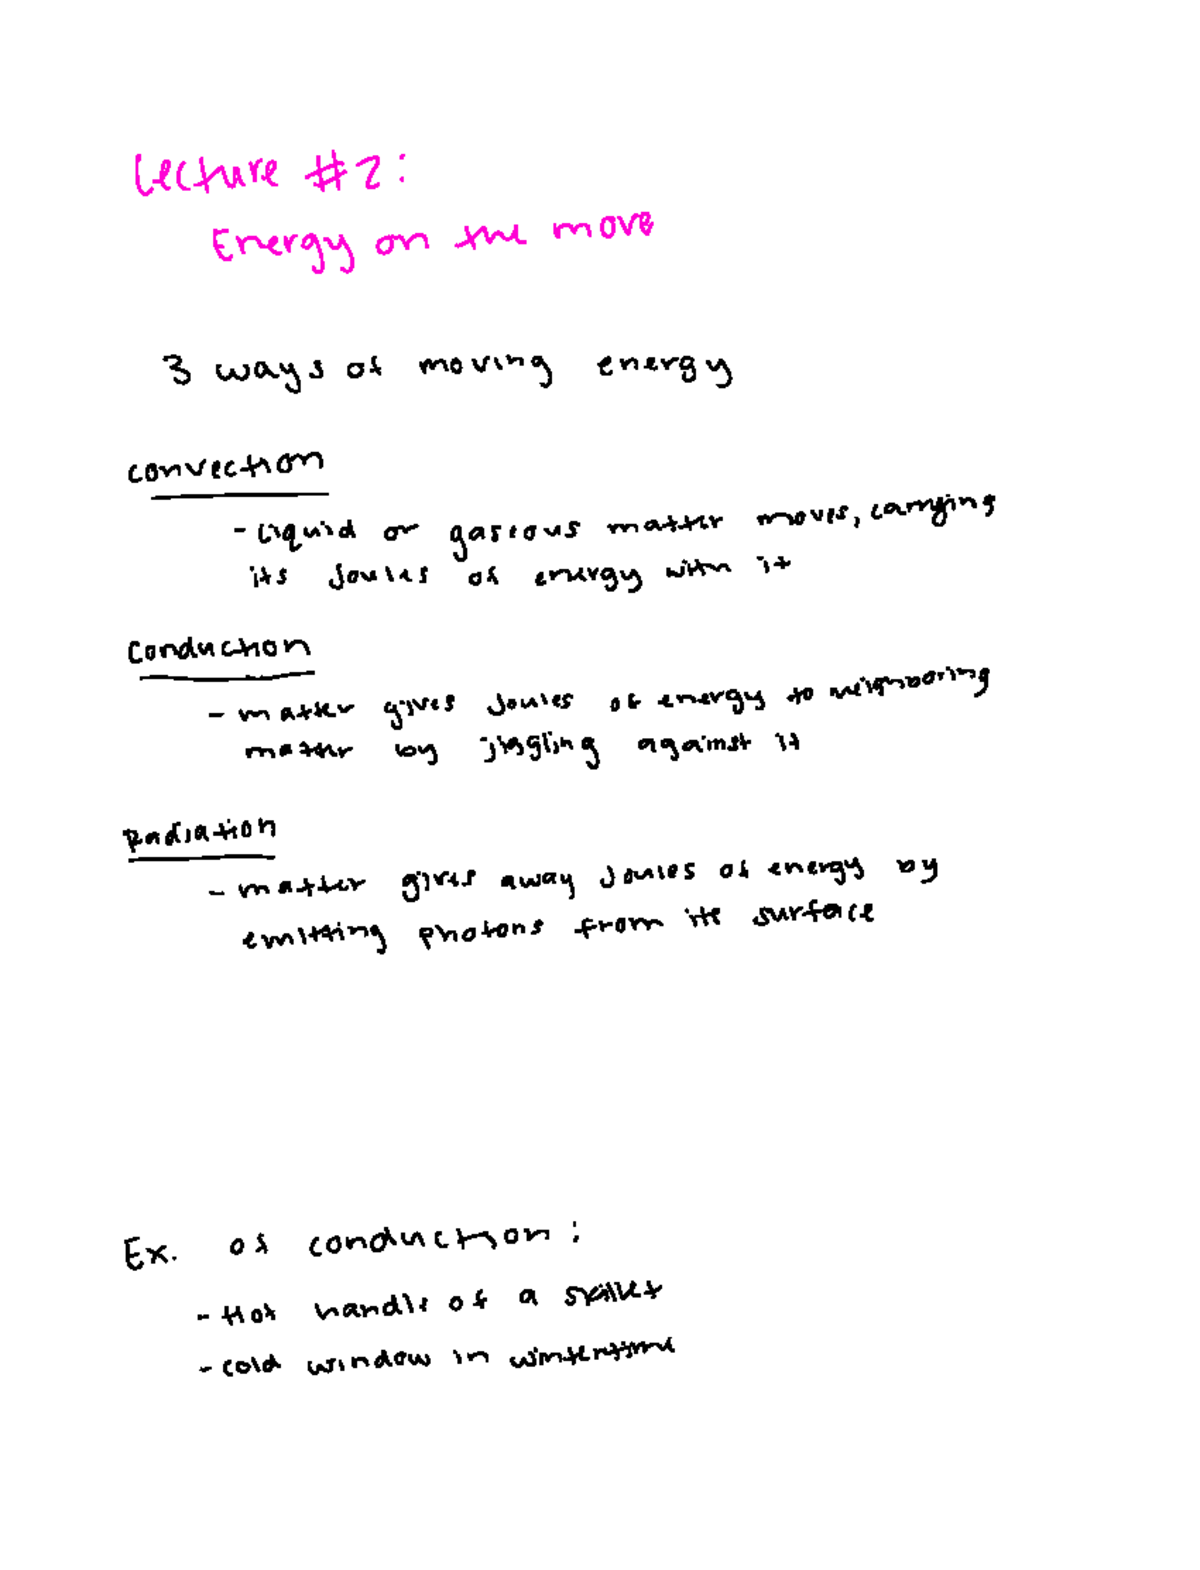 Lecture #2:
Energy on the move
3 ways of moving energy
convection
- Liquid or gaseous matter moves, carrying
its Joules of energy with it
Conduction
- matter gives Joules of energy to neighboring
matter by jiggling against it
Radiation
- matter gives away Joules of energy by
emitting photons from its surface
Ex. of conduction:
- Hot handle of a skillet
- cold window in wintertime